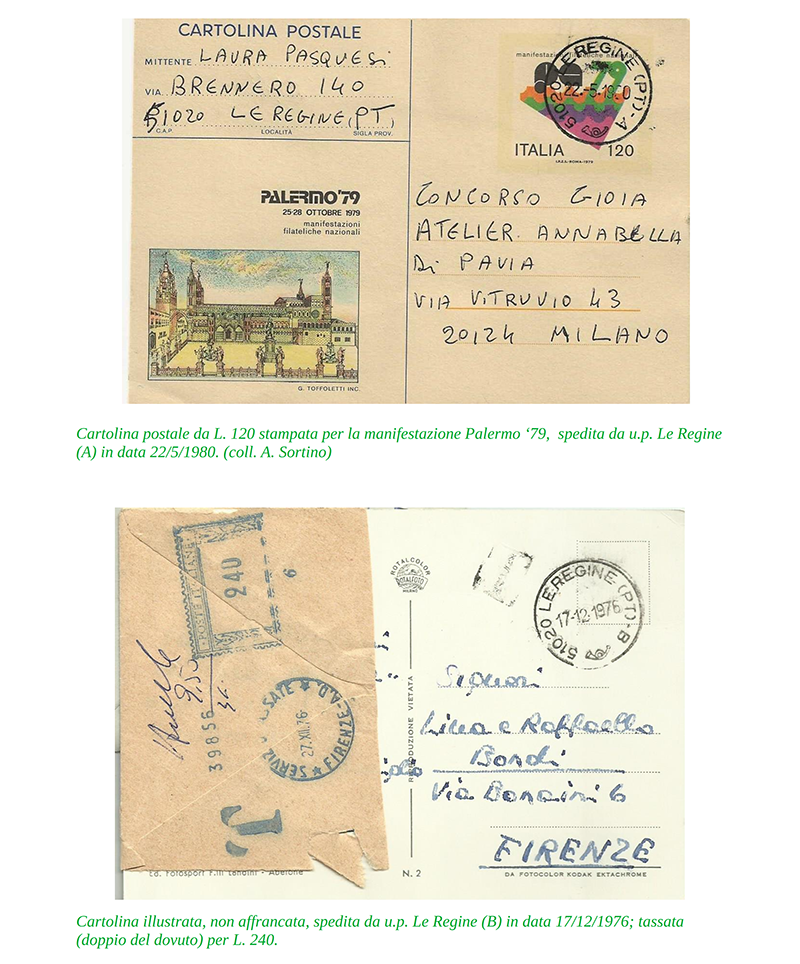 CARTOLINA POSTALE
MITTENTE LAURA PASQUESI
VIA BRENNERO 140
51020 LE REGINE (PT)
C.A.P. LOCALITÀ SIGLA PROV.
manifestazioni filateliche nazionali
79
51020 LE REGINE (PT) - A
22.-5.1980
ITALIA 120
I.P.Z.S.-ROMA-1979
PALERMO'79
25-28 OTTOBRE 1979
manifestazioni
filateliche nazionali
G. TOFFOLETTI INC.
CONCORSO GIOIA
ATELIER. ANNABELLA
Di PAVIA
VIA VITRUVIO 43
20124 MILANO
Cartolina postale da L. 120 stampata per la manifestazione Palermo ‘79, spedita da u.p. Le Regine
(A) in data 22/5/1980. (coll. A. Sortino)
POSTE ITALIANE
240
6
39856
FIRENZE-A.D.
27.XII.76
T
ROTALCOLOR
ROTALFOTO
MILANO
RIPRODUZIONE VIETATA
51020 LE REGINE (PT) - B
17-12-1976
Signori
Lina e Raffaello
Bondi
Via Bonaini 6
FIRENZE
Ed. Fotosport F.lli Landini - Abetone
N. 2
DA FOTOCOLOR KODAK EKTACHROME
Cartolina illustrata, non affrancata, spedita da u.p. Le Regine (B) in data 17/12/1976; tassata
(doppio del dovuto) per L. 240.